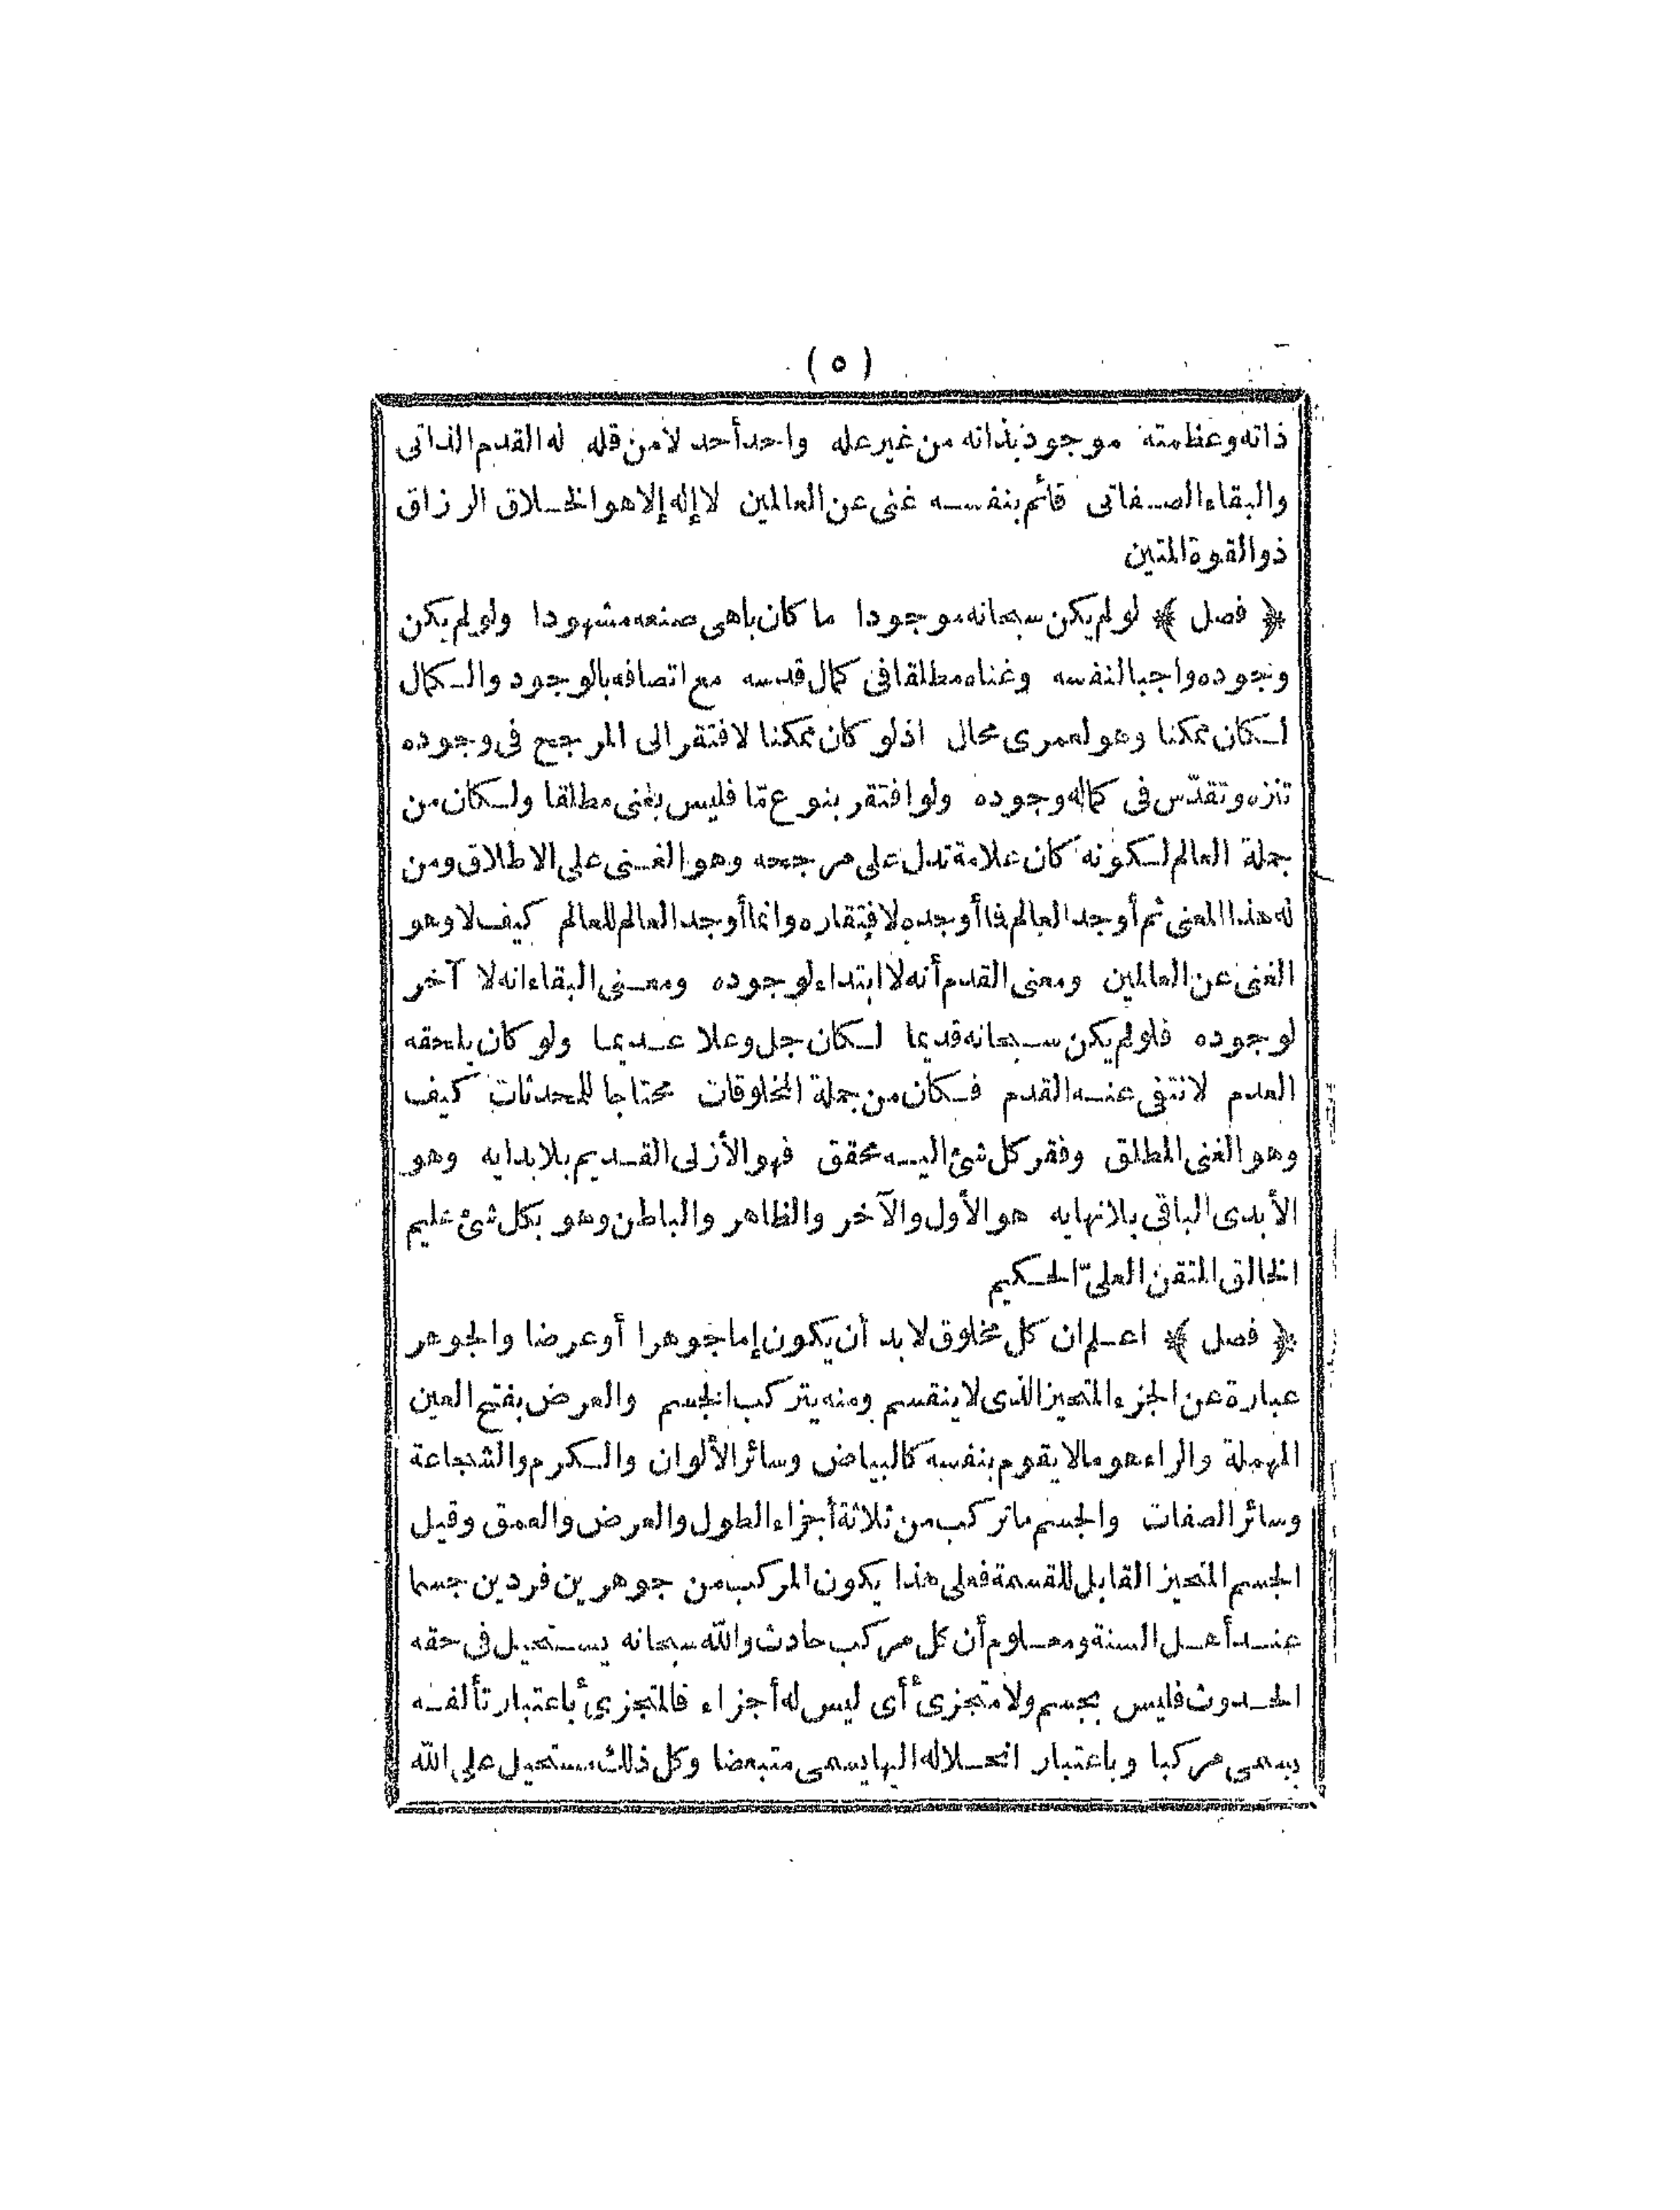 (٥)
ذاته وعظمته موجود بذاته من غير عله واحد أحد لا من قله له القدم الذاتى
والبقاء الصفاتى قائم بنفسه غنى عن العالمين لا إله إلا هو الخلاق الرزاق
ذو القوة المتين
﴿ فصل ﴾ لو لم يكن سبحانه موجودا ما كان باهى صنعه مشهودا ولو لم يكن
وجوده واجبا لنفسه وغناه مطلقا فى كمال قدسه مع اتصافه بالوجود والكمال
لكان ممكنا وهو لعمرى محال اذ لو كان ممكنا لافتقر الى المرجح فى وجوده
تنزه وتقدّس فى كماله وجوده ولو افتقر بنوع مّا فليس بغنى مطلقا ولكان من
جملة العالم لكونه كان علامة تدل على مرجحه وهو الغنى على الاطلاق ومن
له هذا المعنى ثم أوجد العالم فما أوجده لافتقاره وانما أوجد العالم للعالم كيف لا وهو
الغنى عن العالمين ومعنى القدم أنه لا ابتداء لوجوده ومعنى البقاء انه لا آخر
لوجوده فلو لم يكن سبحانه قديما لكان جل وعلا عديما ولو كان يلحقه
العدم لانتفى عنه القدم فكان من جملة المخلوقات محتاجا للمحدثات كيف
وهو الغنى المطلق وفقر كل شئ اليه محقق فهو الأزلى القديم بلا بدايه وهو
الأبدى الباقى بلا نهايه هو الأول والآخر والظاهر والباطن وهو بكل شئ عليم
الخالق المتقن العلىّ الحكيم
﴿ فصل ﴾ اعلم ان كل مخلوق لا بد أن يكون إما جوهرا أو عرضا والجوهر
عبارة عن الجزء المتحيز الذى لا ينقسم ومنه يتركب الجسم والعرض بفتح العين
المهملة والراء هو ما لا يقوم بنفسه كالبياض وسائر الألوان والكرم والشجاعة
وسائر الصفات والجسم ما تركب من ثلاثة أجزاء الطول والعرض والعمق وقيل
الجسم المتحيز القابل للقسمة فعلى هذا يكون المركب من جوهرين فردين جسما
عند أهل السنة ومعلوم أن كل مركب حادث والله سبحانه يستحيل فى حقه
الحدوث فليس بجسم ولا متجزئ أى ليس له أجزاء فالمتجزئ باعتبار تألفه
يسمى مركبا وباعتبار انحلاله اليها يسمى متبعضا وكل ذلك مستحيل على الله